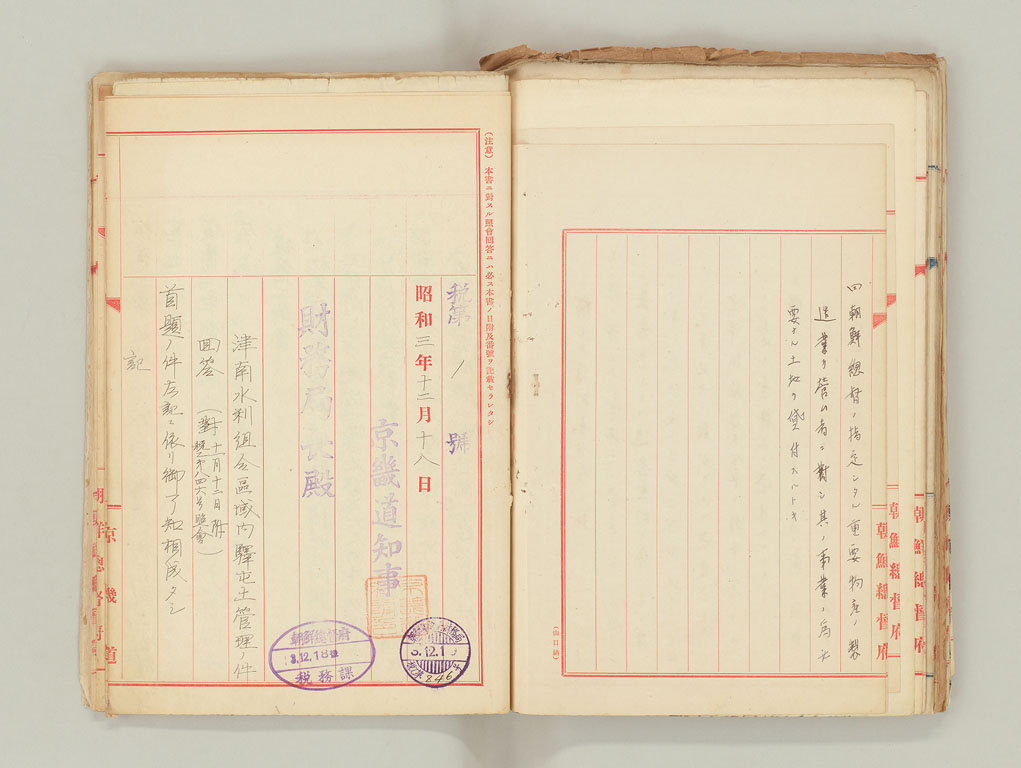 四 朝鮮總督ノ指定シタル重要物産ノ製
造業ヲ營ム者ニ對シ其ノ事業ノ爲必
要ナル土地ヲ貸付スルトキ
朝鮮總督府
朝鮮總督府
朝鮮總督府
(注意) 本書ニ對スル照會回答ニハ必ス本書ノ日附及番號ヲ記載セラレタシ
税第 1 號
昭和三年十二月十八日
京畿道知事
財務局長殿
津南水利組合區域内驛屯土管理ノ件
回答
(對十二月十二日附
號照會)
首題ノ件左記ニ依リ御了知相成タシ
記
朝鮮總督府
3.12.18
税務課
12.1
846
京畿道